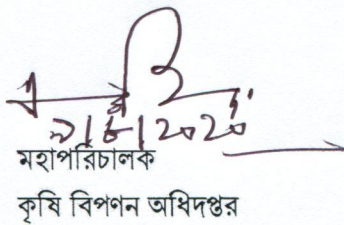 মহাপরিচালক
কৃষি বিপণন অধিদপ্তর